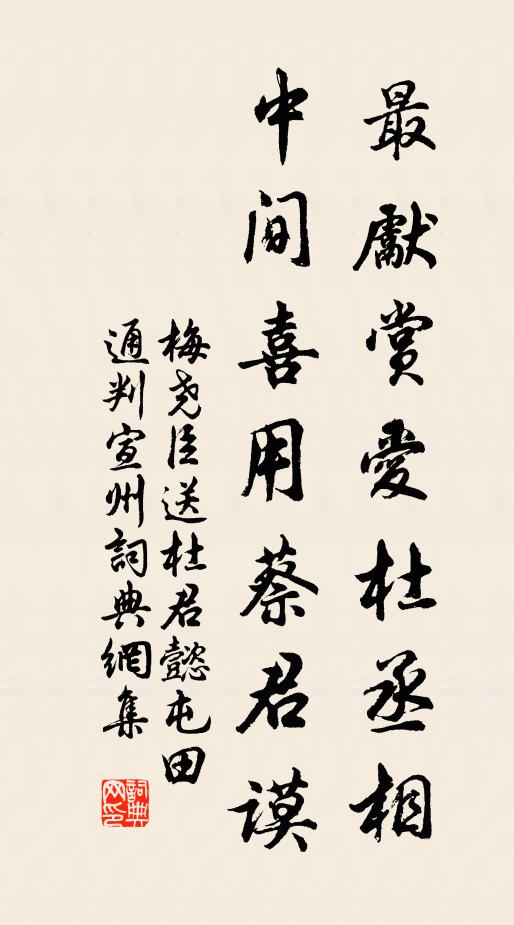 最獻賞愛杜丞相
中间喜用蔡君謨
梅尧臣送杜君懿屯田
通判宣州詞典網集
詞典网印